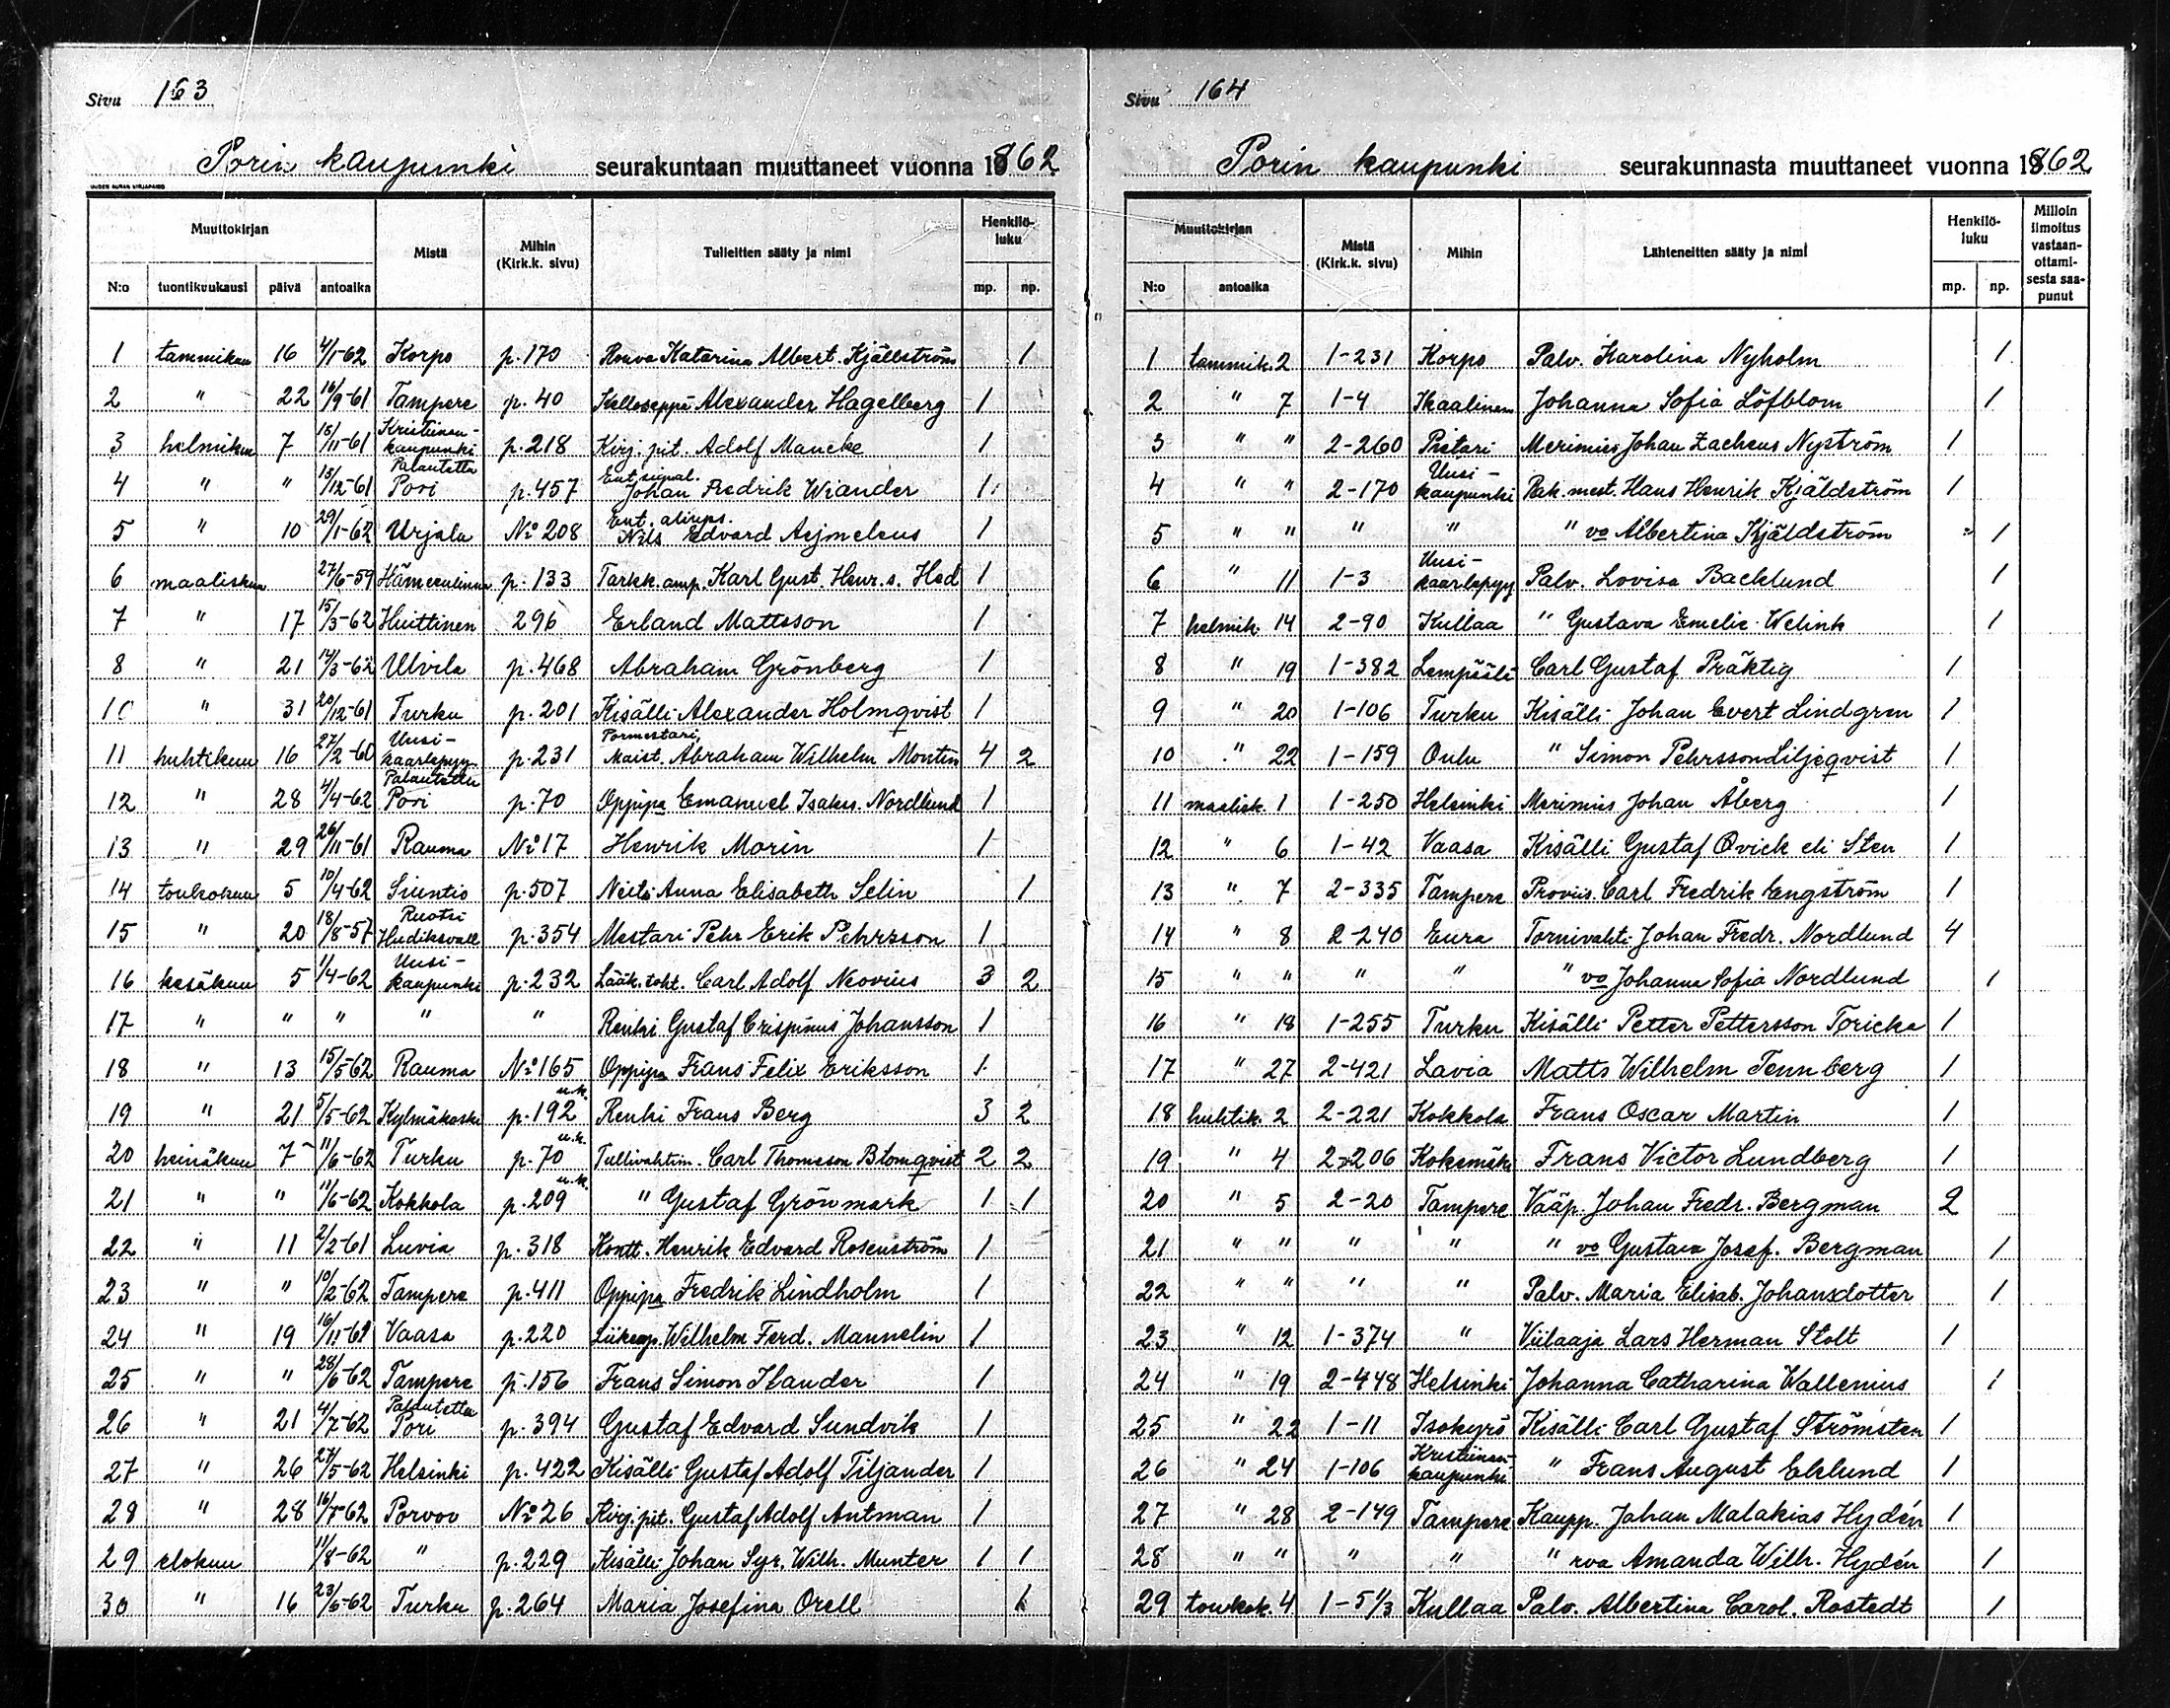 Sivu 163
Porin kaupunki seurakuntaan muuttaneet vuonna 1862
UUDEN AURAN KIRJAPAINO
Muuttokirjan Mistä Mihin (Kirk.k. sivu) Tulleitten sääty ja nimi Henkilö-luku
N:o tuontikuukausi päivä antoaika mp. np.
1 tammikuu 16 4/1-62 Korpo p. 170 Rouva Katarina Albert. Kjällström 1
2 " 22 16/9-61 Tampere p. 40 Kelloseppä Alexander Hagelberg 1
3 helmikuu 7 18/11-61 Kristiinan-kaupunki p. 218 Kirj. pit. Adolf Mancke 1
4 " " 18/12-61 Palautettu Pori p. 457 Ent. Johan Fredrik Wiander 1
5 " 10 29/1-62 Urjala No 208 Ent. aliups. Nils Edvard Aejmeleus 1
6 maaliskuu 27/6-59 Hämeenlinna p. 133 Tarkk. amp. Karl Gust. Henr. s. Hed 1
7 " 17 15/3-62 Huittinen 296 Erland Mattsson 1
8 " 21 14/3-62 Ulvila p. 468 Abraham Grönberg 1
10 " 31 20/12-61 Turku p. 201 Kisälli Alexander Holmqvist 1
11 huhtikuu 16 27/2-60 Uusi-kaarlepyy p. 231 Pormestari, Maist. Abraham Wilhelm Montin 4 2
12 " 28 4/4-62 Palautettu Pori p. 70 Oppipa Emanuel Isakss. Nordlund 1
13 " 29 26/11-61 Rauma No 17 Henrik Morin 1
14 toukokuu 5 10/4-62 Siuntio p. 507 Neiti Anna Elisabeth Selin 1
15 " 20 18/8-57 Ruotsi Hudiksvall p. 354 Mestari Pehr Erik Pehrsson 1
16 kesäkuu 5 1/4-62 Uusi-kaupunki p. 232 Lääk. toht. Carl Adolf Neovius 3 2
17 " " " " " Renki Gustaf Crispinus Johansson 1
18 " 13 15/5-62 Rauma No 165 Oppipa Frans Felix Eriksson 1
19 " 21 5/5-62 Kylmäkoski p. 192 u.k. Renki Frans Berg 3 2
20 heinäkuu 7 11/6-62 Turku p. 70 u.k. Tullivahtim. Carl Thomsson Blomqvist 2 2
21 " " 11/6-62 Kokkola p. 209 u.k. " Gustaf Grönmark 1 1
22 " 11 2/2-61 Luvia p. 318 Kontt. Henrik Edvard Rosenström 1
23 " " 10/2-62 Tampere p. 411 Oppipa Fredrik Lindholm 1
24 " 19 16/11-61 Vaasa p. 220 Liikeap. Wilhelm Ferd. Mannelin 1
25 " " 28/6-62 Tampere p. 156 Frans Simon Ilander 1
26 " 21 4/7-62 Palautettu Pori p. 394 Gustaf Edvard Sundvik 1
27 " 26 27/5-62 Helsinki p. 422 Kisälli Gustaf Adolf Tiljander 1
28 " 28 16/7-62 Porvoo No 26 Kirj. pit. Gustaf Adolf Antman 1
29 elokuu 11/8-62 " p. 229 Kisälli Johan Syr. Wilh. Munter 1 1
30 " 16 23/6-62 Turku p. 264 Maria Josefina Orell 1
Sivu 164
Porin kaupunki seurakunnasta muuttaneet vuonna 1862
Muuttokirjan Mistä (Kirk.k. sivu) Mihin Lähteneitten sääty ja nimi Henkilö-luku Milloin ilmoitus vastaan-ottami-sesta saa-punut
N:o antoaika mp. np.
1 tammik. 2 1-231 Korpo Palv. Karolina Nyholm 1
2 " 7 1-4 Ikaalinen Johanna Sofia Löfblom 1
3 " " 2-260 Pietari Merimies Johan Zacheus Nyström 1
4 " " 2-170 Uusi-kaupunki Rak. mest. Hans Henrik Kjäldström 1
5 " " " " " vo Albertina Kjäldström 1
6 " 11 1-3 Uusi-kaarlepyy Palv. Lovisa Backlund 1
7 helmik. 14 2-90 Kullaa " Gustava Emelie Welink 1
8 " 19 1-382 Lempäälä Carl Gustaf Präktig 1
9 " 20 1-106 Turku Kisälli Johan Evert Lindgren 1
10 " 22 1-159 Oulu " Simon Pehrsson Liljeqvist 1
11 maalisk. 1 1-250 Helsinki Merimies Johan Åberg 1
12 " 6 1-42 Vaasa Kisälli Gustaf Qvick eli Sten 1
13 " 7 2-335 Tampere Proviis. Carl Fredrik Engström 1
14 " 8 2-240 Eura Tornivahti Johan Fredr. Nordlund 4
15 " " " " " vo Johanna Sofia Nordlund 1
16 " 18 1-255 Turku Kisälli Petter Pettersson Toricka 1
17 " 27 2-421 Lavia Matts Wilhelm Tennberg 1
18 huhtik. 2 2-221 Kokkola Frans Oscar Martin 1
19 " 4 2-206 Kokemäki Frans Victor Lundberg 1
20 " 5 2-20 Tampere Vääp. Johan Fredr. Bergman 2
21 " " " " " vo Gustava Josef. Bergman 1
22 " " " " Palv. Maria Elisab. Johansdotter 1
23 " 12 1-374 " Viilaaja Lars Herman Stolt 1
24 " 19 2-448 Helsinki Johanna Catharina Wallenius 1
25 " 22 1-11 Isokyrö Kisälli Carl Gustaf Strömsten 1
26 " 24 1-106 Kristiinan-kaupunki " Frans August Eklund 1
27 " 28 2-149 Tampere Kaupp. Johan Malakias Hydén 1
28 " " " " " rva Amanda Wilh. Hydén 1
29 toukok. 4 1-5 1/3 Kullaa Palv. Albertina Carol. Rostedt 1